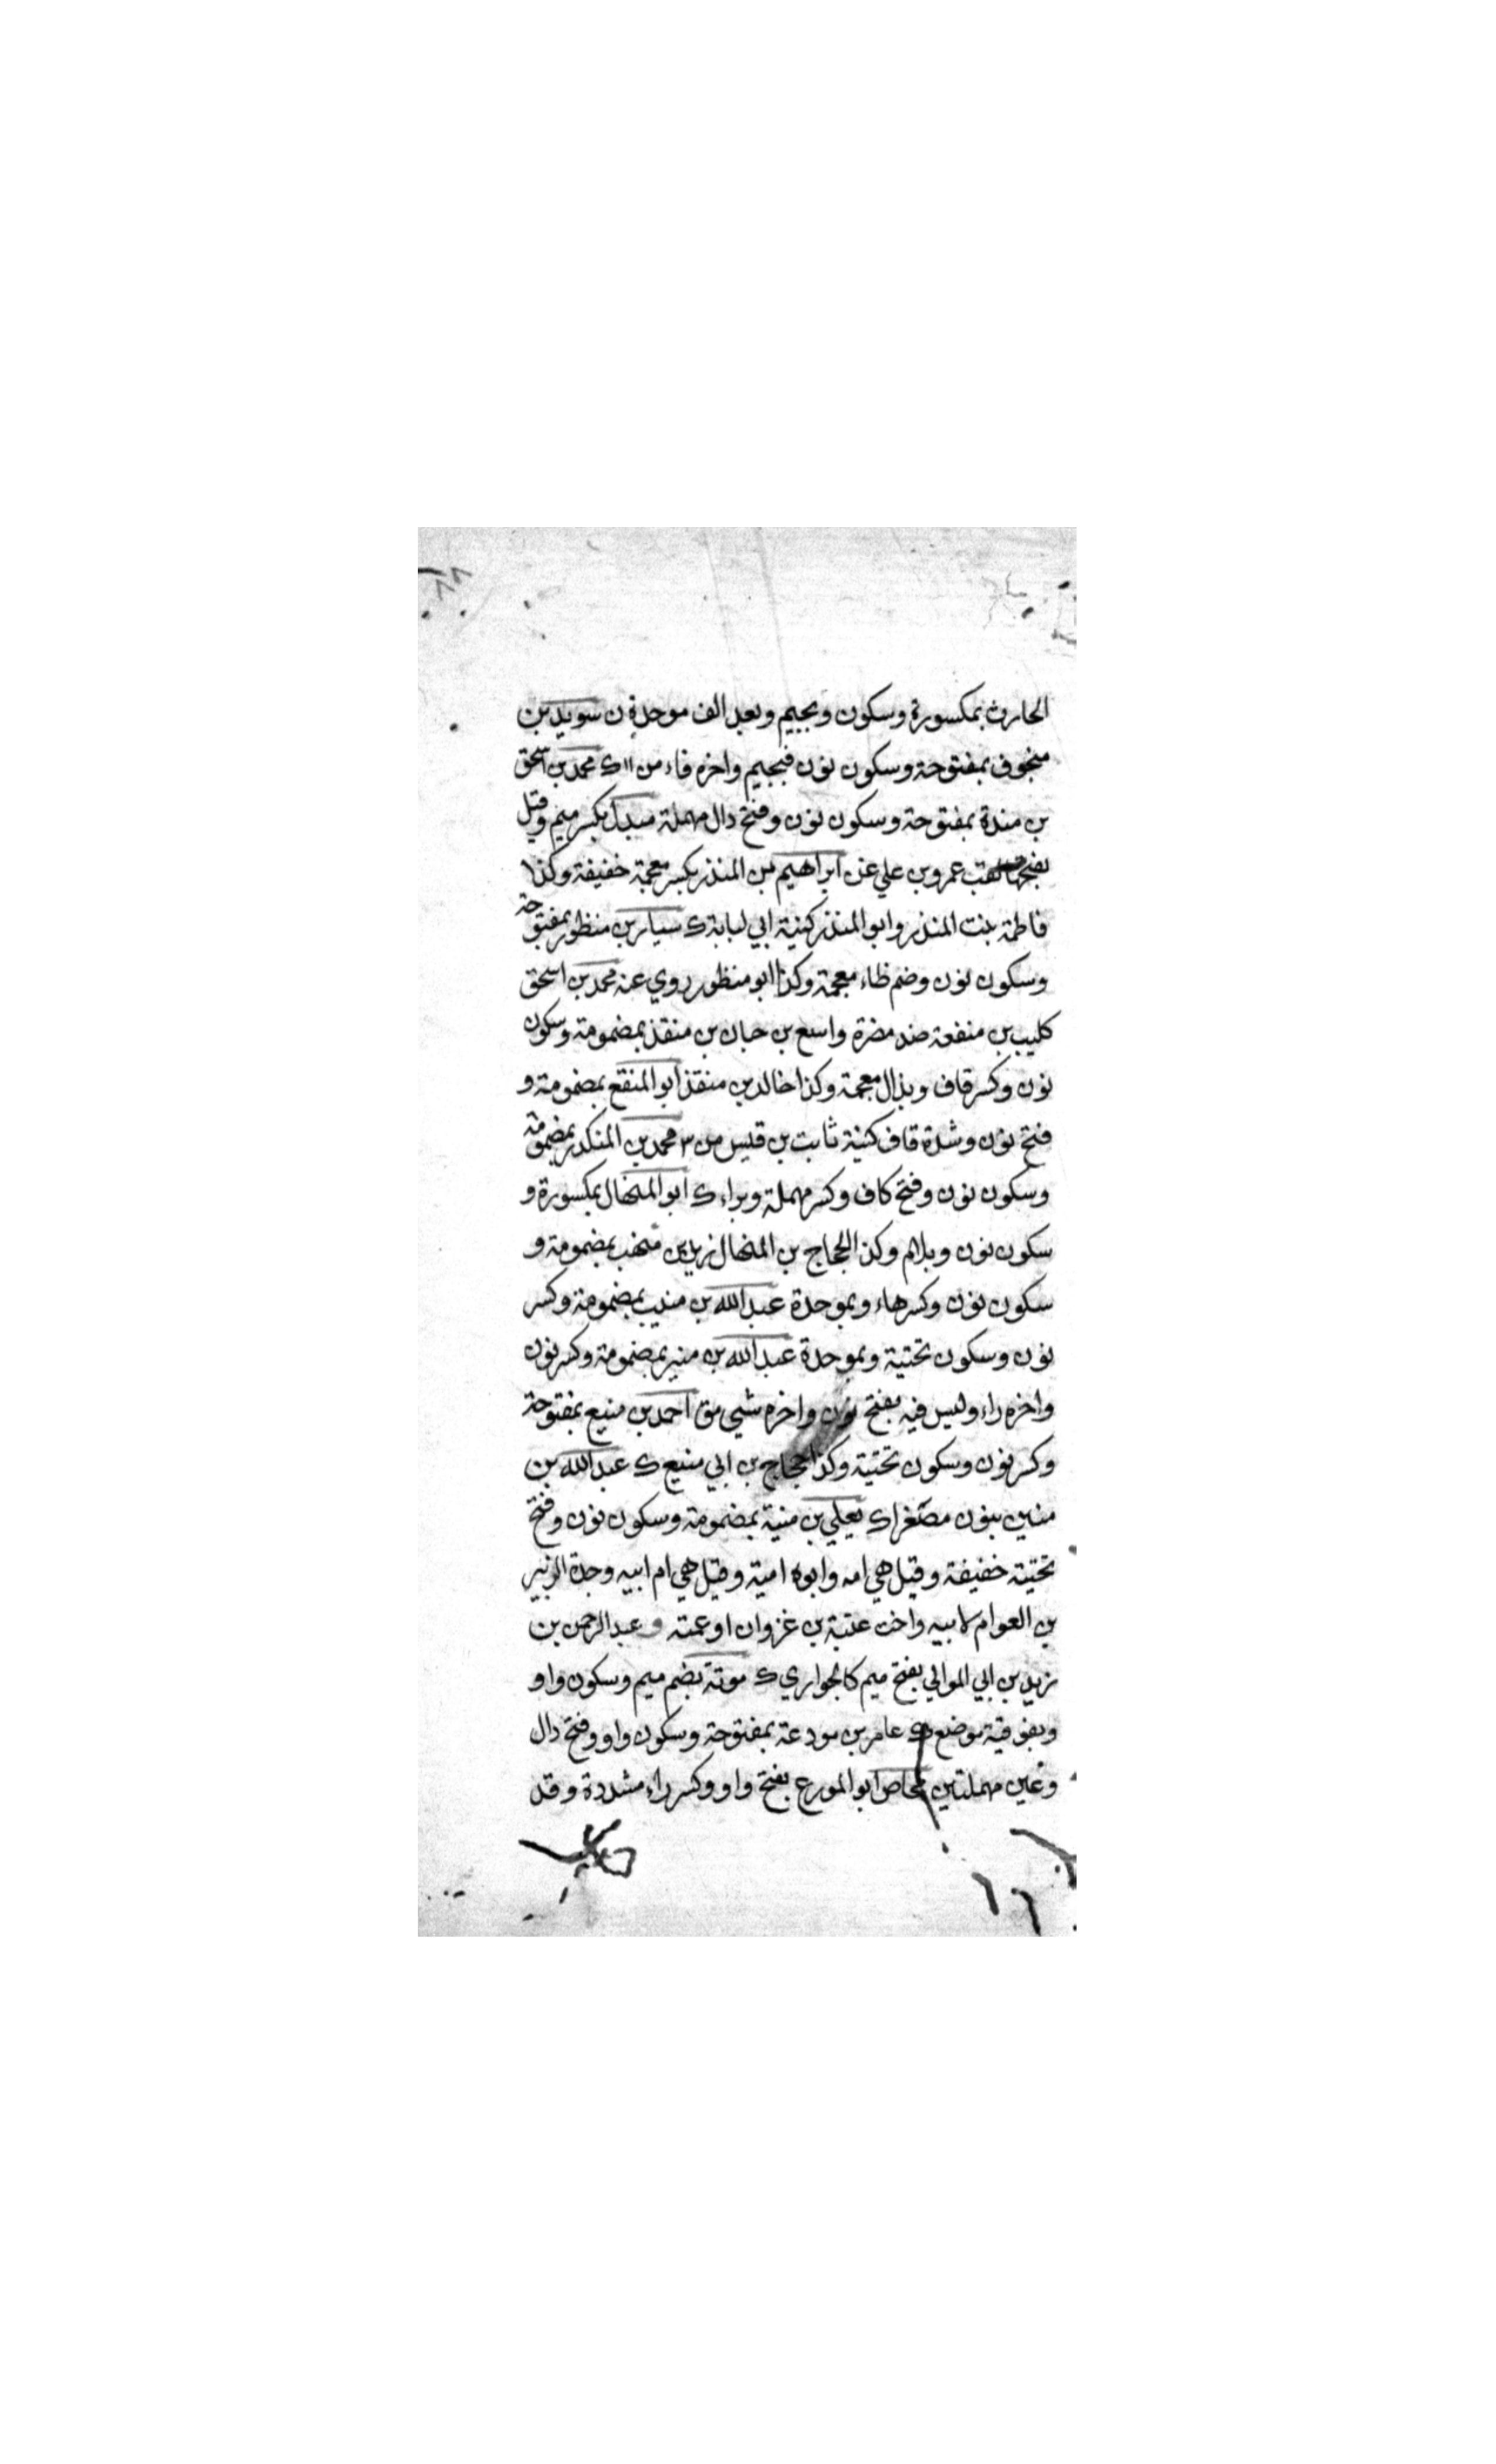 الحارث بمكسورة وسكون وبجيم وبعد الف موحدة ن سويد بن
منجوف بمفتوحة وسكون نون فبجيم واخره فاء من ١١ ك محمد بن اسحق
بن مندة بمفتوحة وسكون نون وفتح دال مهملة مندل بكسر ميم وقيل
بفتحها لقب عمرو بن علي عن ابراهيم بن المنذر بكسر معجمة خفيفة وكذا
فاطمة بنت المنذر وابو المنذر كنية ابي لبابة ك سيار بن منظور بمفتوحة
وسكون نون وضم ظاء معجمة وكذا ابو منظور روي عنه محمد بن اسحق
كليب بن منفعة ضد مضرة واسع بن حبان بن منقذ بمضمومة وسكون
نون وكسر قاف وبذال معجمة وكذا خالد بن منقذ ابو المنقع بمضمومة و
فتح نون وشدة قاف كنية ثابت بن قيس من ٣ محمد بن المنكدر بمضمومة
وسكون نون وفتح كاف وكسر مهملة وبراء ك ابو المنهال بمكسورة و
سكون نون وبلام وكذا الحجاج بن المنهال زيد بن منهب بمضمومة و
سكون نون وكسر هاء وبموحدة عبد الله بن منيب بمضمومة وكسر
نون وسكون تحتية وبموحدة عبد الله بن منير بمضمومة وكسر نون
واخره راء وليس فيه بفتح نون واخره شيي مق احمد بن منيع بمفتوحة
وكسر نون وسكون تحتية وكذا حجاج بن ابي منيع ك عبد الله بن
منين بنون مصغرا ك يعلي بن منية بمضمومة وسكون نون وفتح
تحتية خفيفة وقيل هي امه وابوه امية وقيل هي ام ابيه وجدة الزبير
بن العوام لابيه واخت عتبة بن غزوان او عمته و عبد الرحمن بن
زيد بن ابي الموالي بفتح ميم كالجواري ك موتة بضم ميم وسكون واو
وبفوقية موضع ك عامر بن مودعة بمفتوحة وسكون واو وفتح دال
وعين مهملتين محاضر ابو المورع بفتح واو وكسر راء مشددة وقد